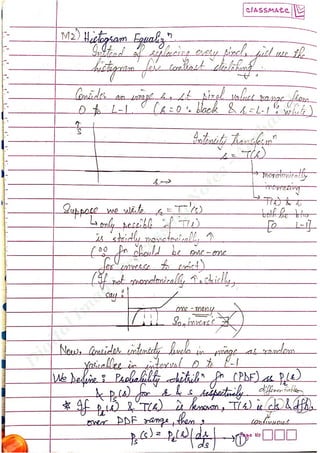 classmate
M2) Histogram Equalizn
Instead of replacing every pixel, just use the
histogram for contrast stretching.
Consider an image r, st pixel values range from
0 to L-1 (r=0: black & r=L-1: white)
s
Intensity transformn
s = T(r)
r →
→ monotonically
increasing
→ T(r) & r
both lie b/w
[0 L-1]
Suppose we write r = T⁻¹(s)
↳ only possible if T(r)
is strictly monotonically ↑
(∵ fn should be one-one
for inverse to exist)
(If not monotonically ↑, strictly,
say:
one-many
So, inverse X)
Now, consider intensity levels in image as random
variables in interval 0 to L-1
We define: Probability distribn fn (PDF) as Pr(r)
& Ps(s) for r & s respectively.
differentiable
* If Pr(r) & T(r) is known, T(r) is cts & dfb
over PDF range, then,
continuous
Ps(s) = Pr(r) |dr/ds| → ①
Page No